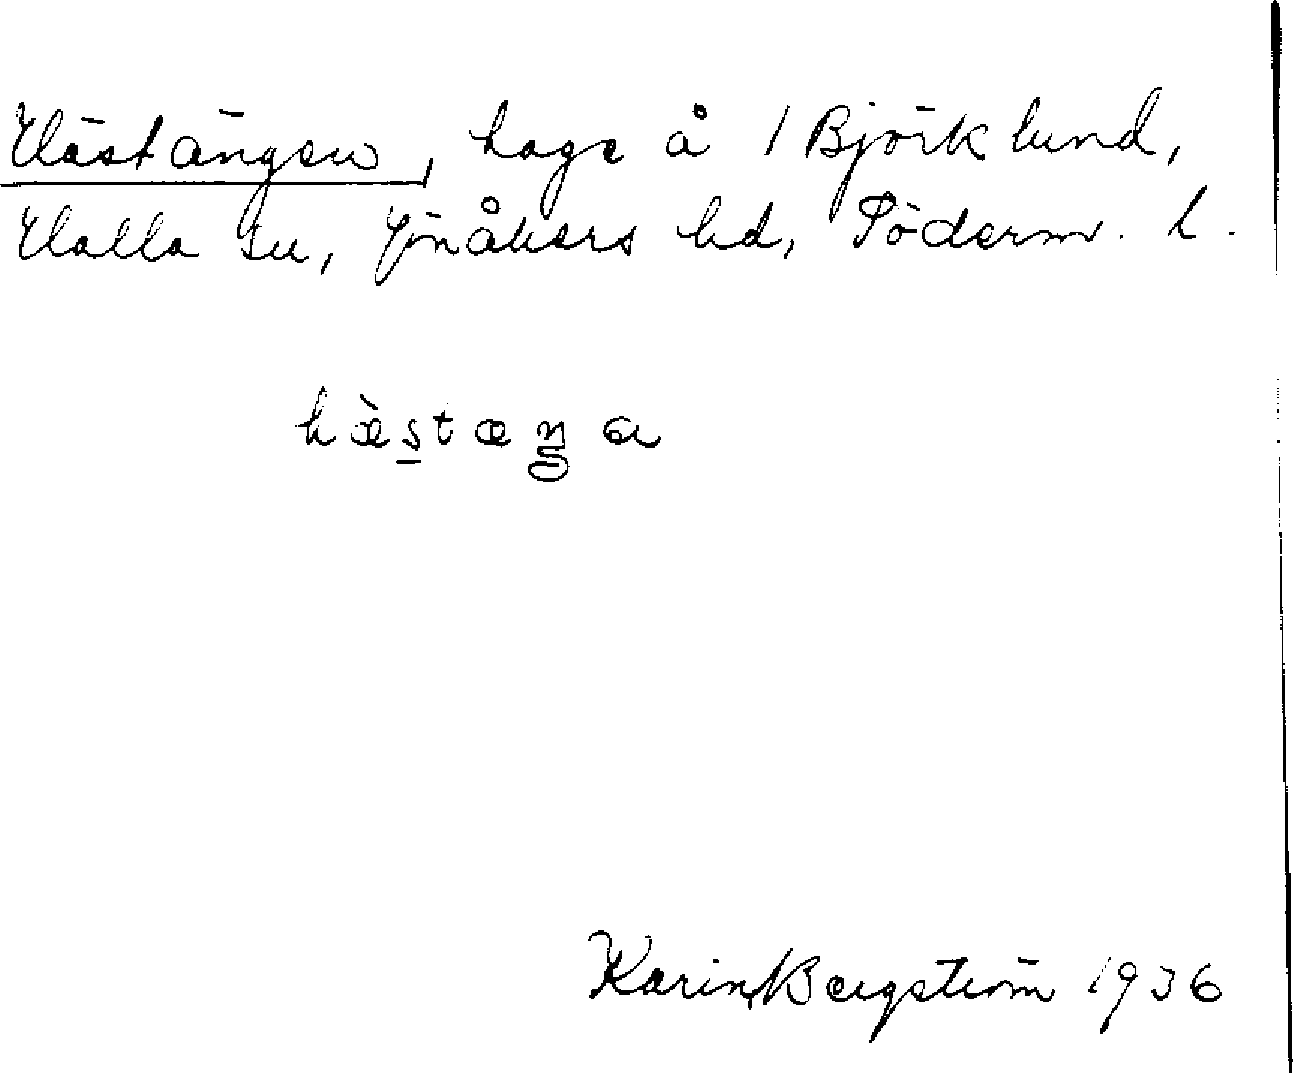 Hästängen, hage å 1 Björklund,
Halla sn, Jönåkers hd, Söderm. l.
hæ̀stæŋa
Karin Bergström 1936